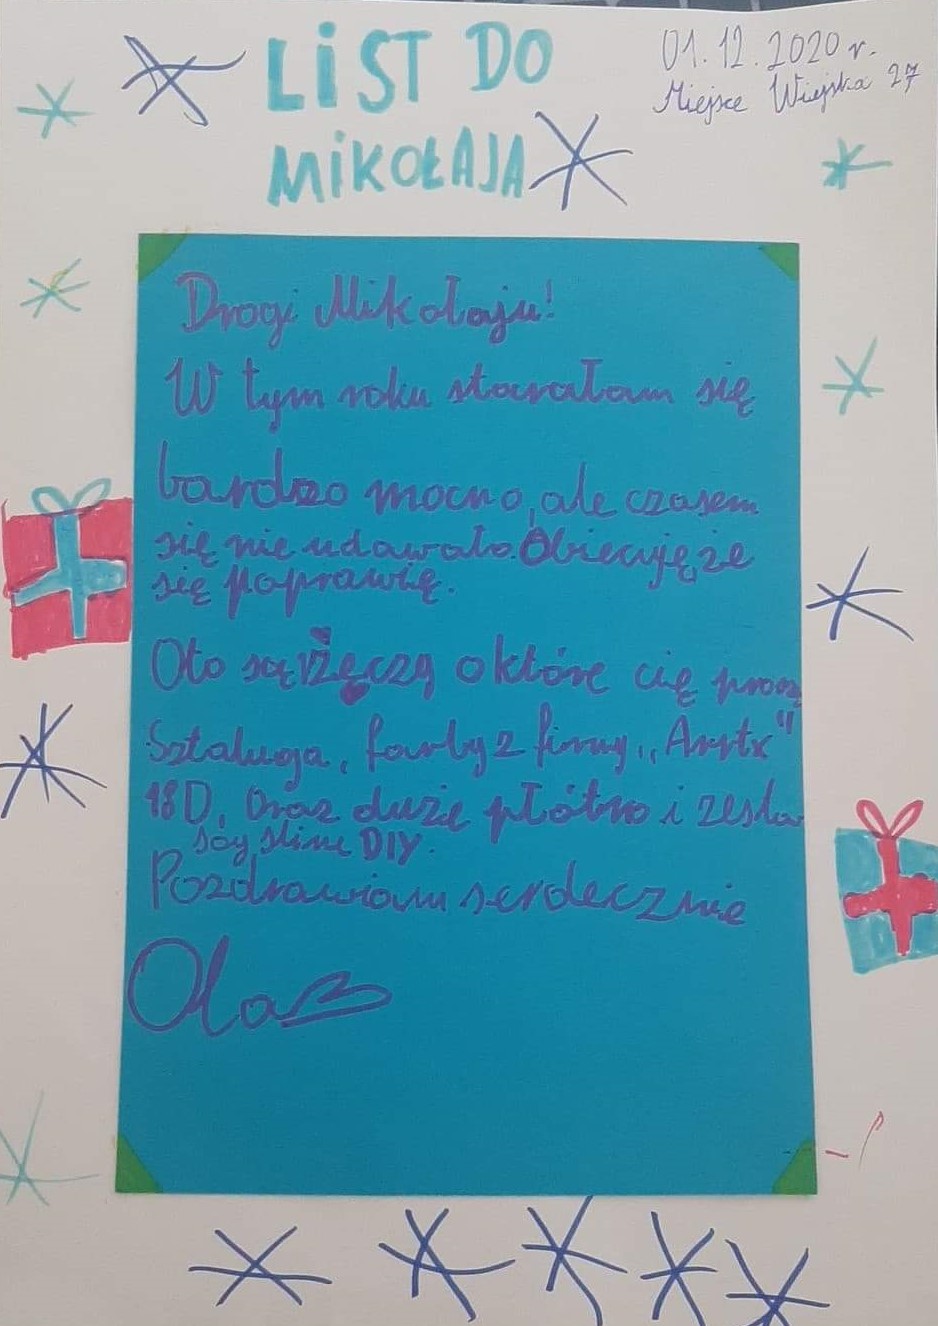 LiST DO
MiKOŁAJA
01.12.2020 r.
Miejsce Wiejska 27
Drogi Mikołaju!
W tym roku starałam się
bardzo mocno, ale czasem
się nie udawało. Obiecuję, że
się poprawię.
Oto są żeczy o które cię prosz
Sztaluga, farby z firmy „Artx"
18D, Oraz duże płótno i zestaw
slime DIY.
Pozdrawiam serdecznie
Ola